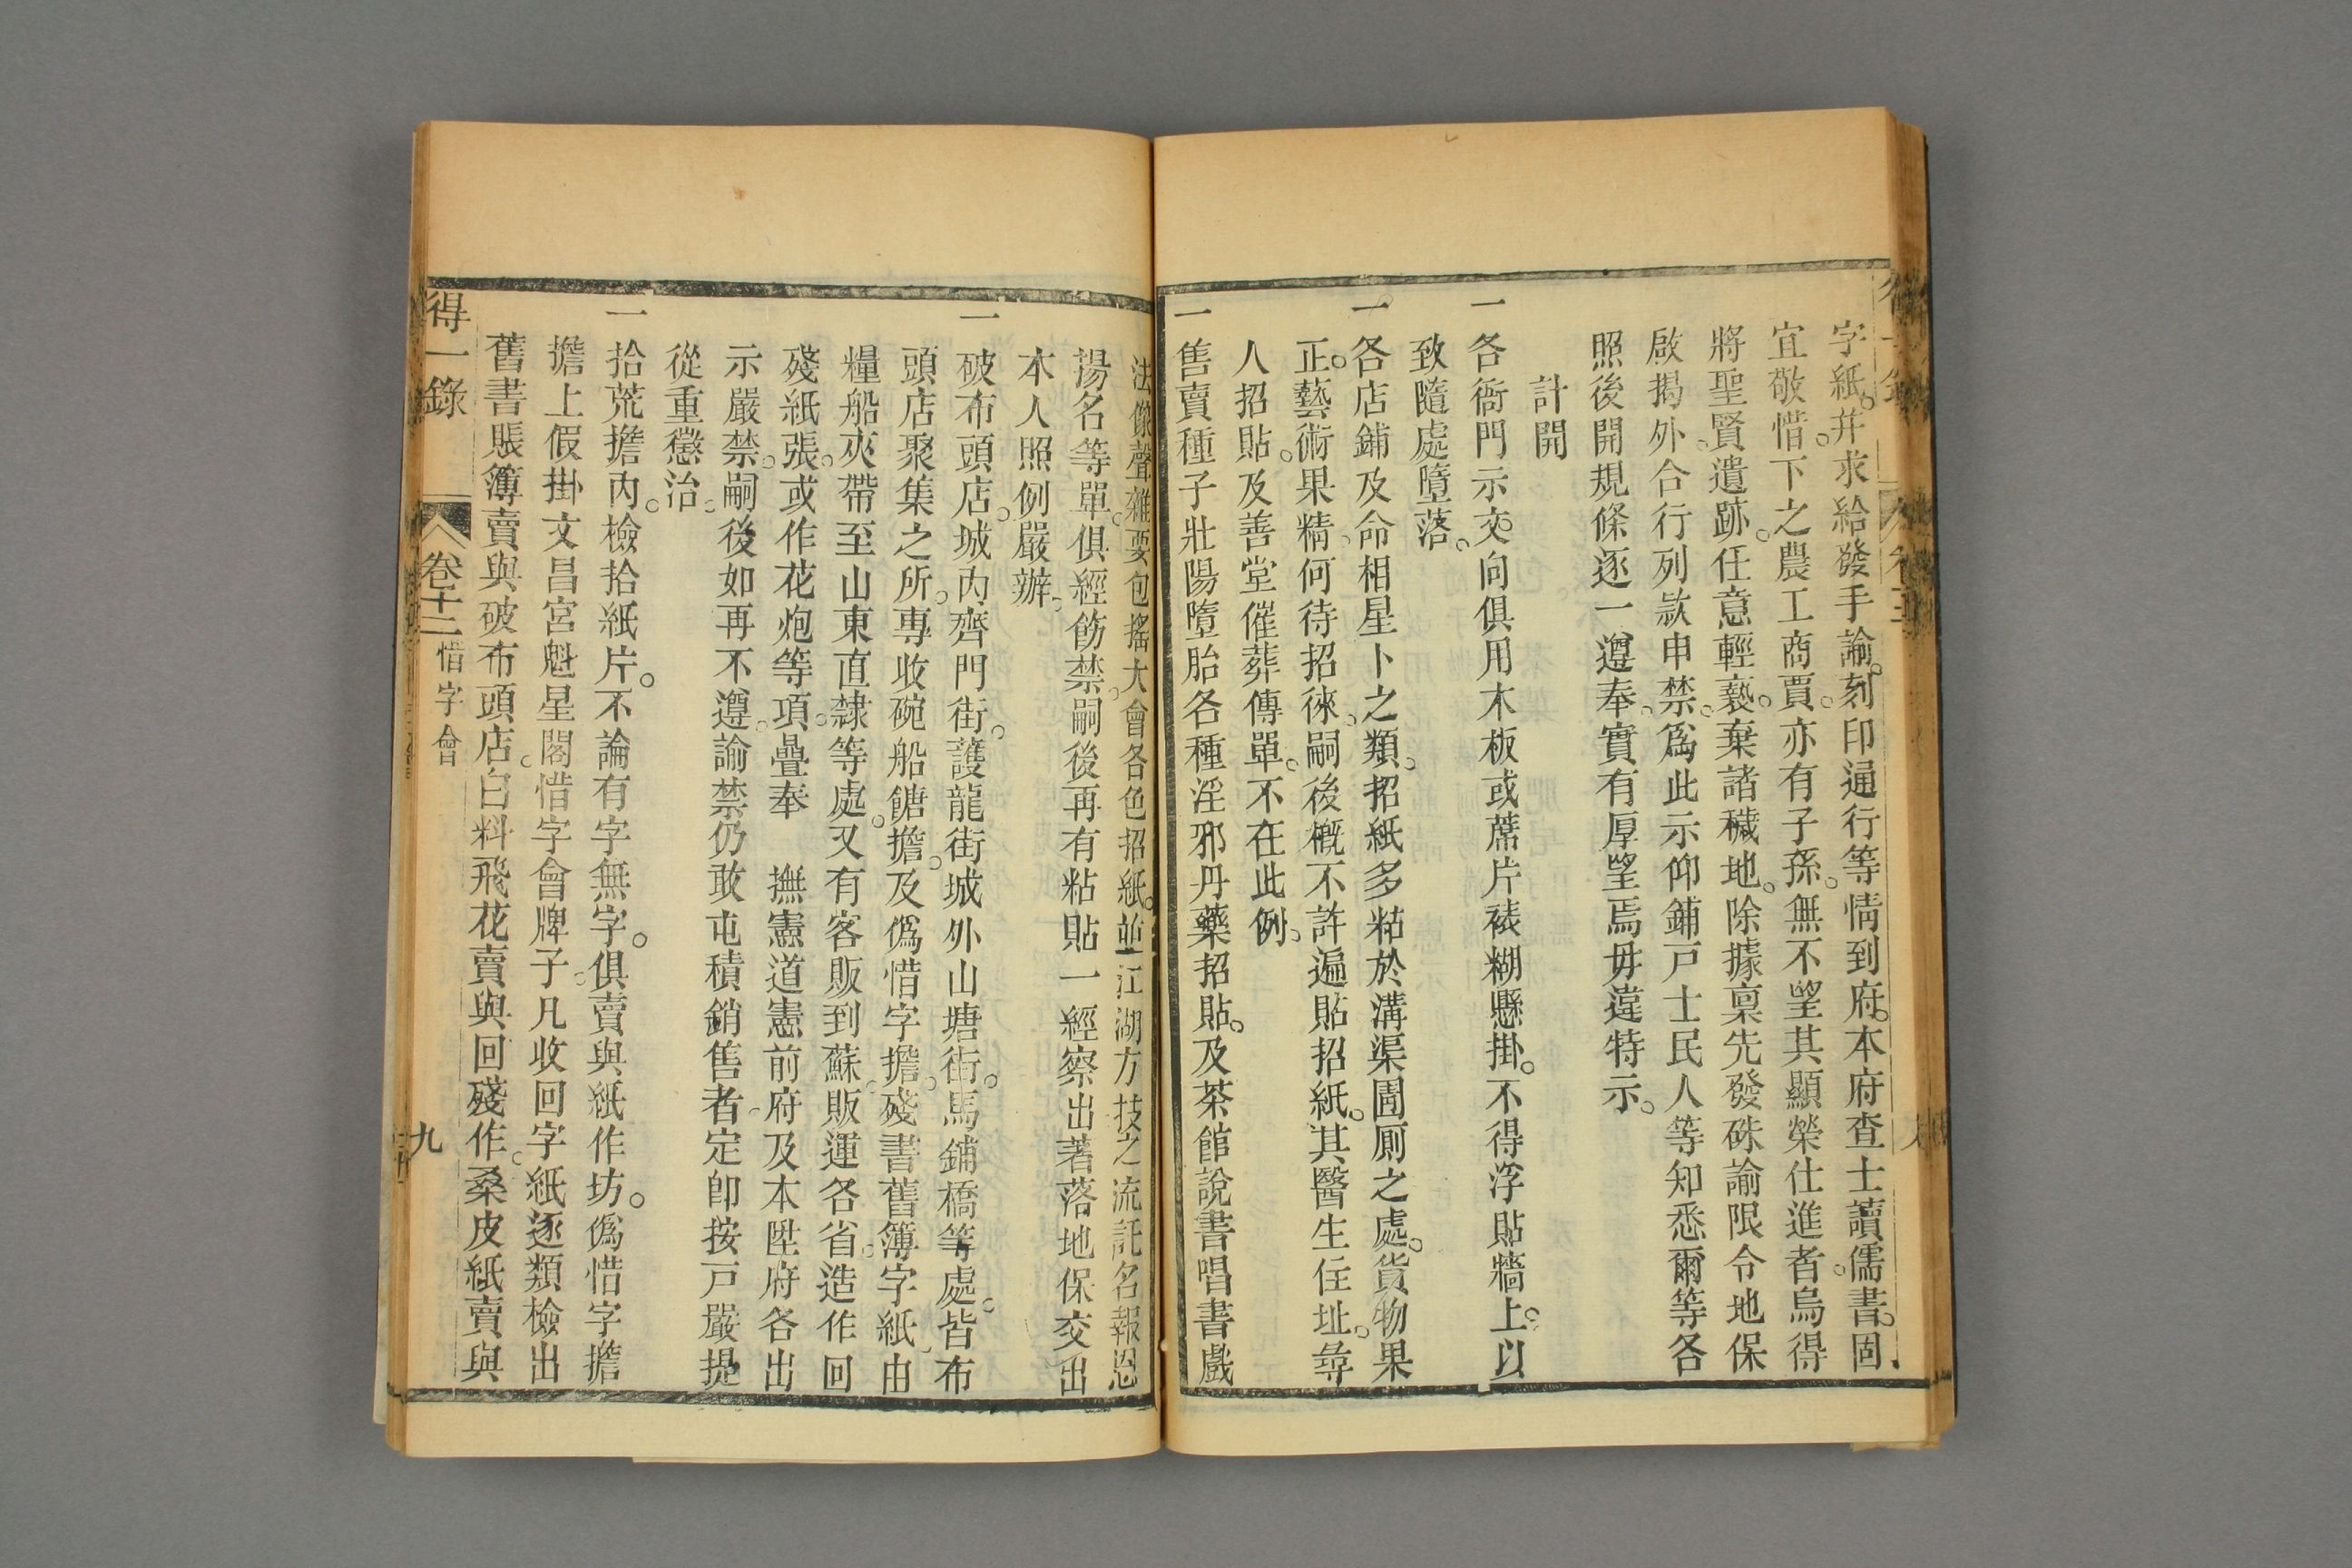 字紙。幷求給發手諭。刻印通行等情到府。本府查士讀儒書。固
宜敬惜。下之農工商賈。亦有子孫。無不望其顯榮仕進者。烏得
將聖賢遺跡。任意輕褻。棄諸穢地。除據稟先發硃諭限令地保
啟揭外。合行列款申禁。爲此示仰鋪戸士民人等知悉爾等各
照後開規條逐一遵奉。實有厚望焉毋違特示。
計開
一各衙門示交向俱用木板或蓆片裱糊懸掛。不得浮貼牆上。以
致隨處墮落。
一各店鋪及命相星卜之類。招紙多粘於溝渠圊厠之處。貨物果
正。藝術果精。何待招徠。嗣後槪不許遍貼招紙。其醫生住址。尋
人招貼。及善堂催葬傳單。不在此例。
一售賣種子壯陽墮胎各種淫邪丹藥招貼。及茶館說書唱書戲
法像聲雜耍包搖大會各色招紙。並江湖方技之流託名報恩
揚名等單。俱經飭禁。嗣後再有粘貼一經察出著落地保交出
本人照例嚴辦。
一破布頭店。城內齊門街。護龍街城外山塘街。馬鋪橋等處。皆布
頭店聚集之所。專收碗船餹擔。及僞惜字擔。殘書舊簿字紙。由
糧船夾帶至山東直隸等處。又有客販到蘇。販運各省。造作回
殘紙張。或作花炮等項。疊奉 撫憲道憲前府及本陞府各出
示嚴禁。嗣後如再不遵。諭禁仍敢屯積銷售者。定卽按戸嚴提
從重懲治。
一拾荒擔內。檢拾紙片。不論有字無字。俱賣與紙作坊。僞惜字擔
擔上假掛文昌宮魁星閣惜字會牌子。凡收回字紙逐類檢出
舊書賬簿賣與破布頭店。白料飛花賣與回殘作。桑皮紙賣與
得一錄
卷十二
惜字會
九